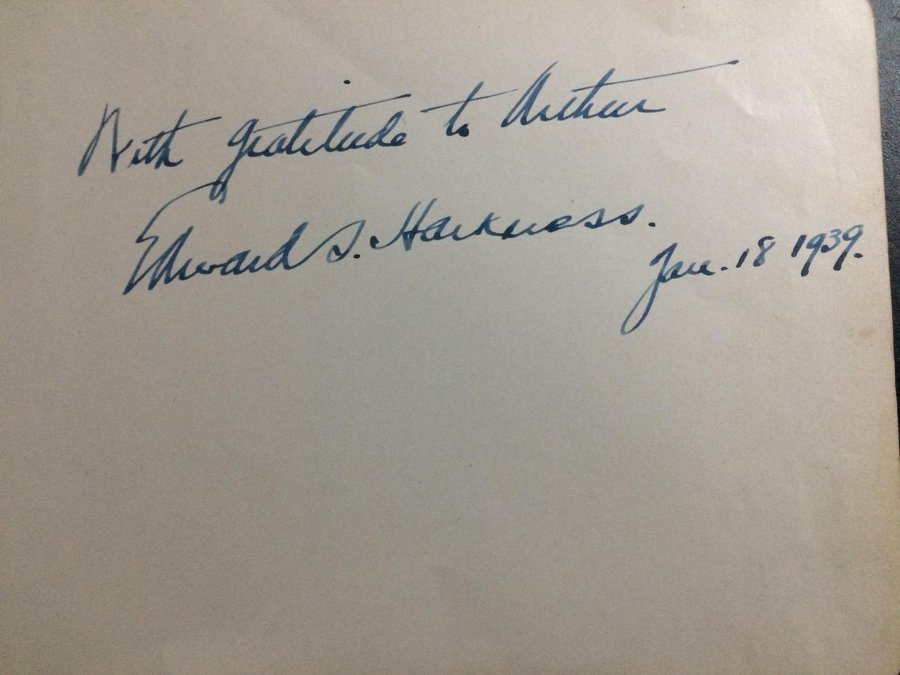 With gratitude to Arthur
Edward S. Harkness.
Jan. 18 1939.